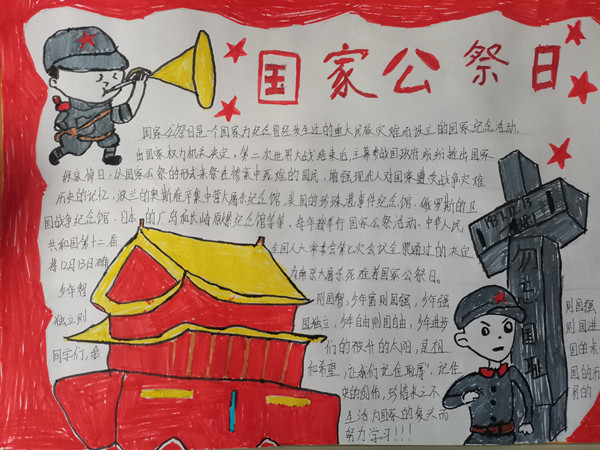 国家公祭日
国家公祭日是一个国家为纪念曾经发生过的重大民族灾难而设立的国家纪念活动,
由国家权力机关决定。第二次世界大战结束后,主要参战国政府纷纷推出国家
级哀悼日,以国家公祭的形式来祭奠惨案中死难的国民,增强现代人对国家遭受战争灾难
历史的记忆,波兰的奥斯维辛集中营大屠杀纪念馆,美国的珍珠港事件纪念馆,俄罗斯的卫
国战争纪念馆,日本的广岛和长崎原爆纪念馆等等,每年都举行国家公祭活动,中华人民
共和国第十二届 全国人大常委会第七次会议全票通过的决定
将12月13日确 为南京大屠杀死难者国家公祭日。
少年智 则国智,少年富则国强,少年强 则国强
独立则 国独立,少年自由则国自由,少年进步 则国进
同学们,我 们的祖 和希望 让我们记住耻辱,记住
生活 国家的复兴而
努力学习!!!
勿忘国耻